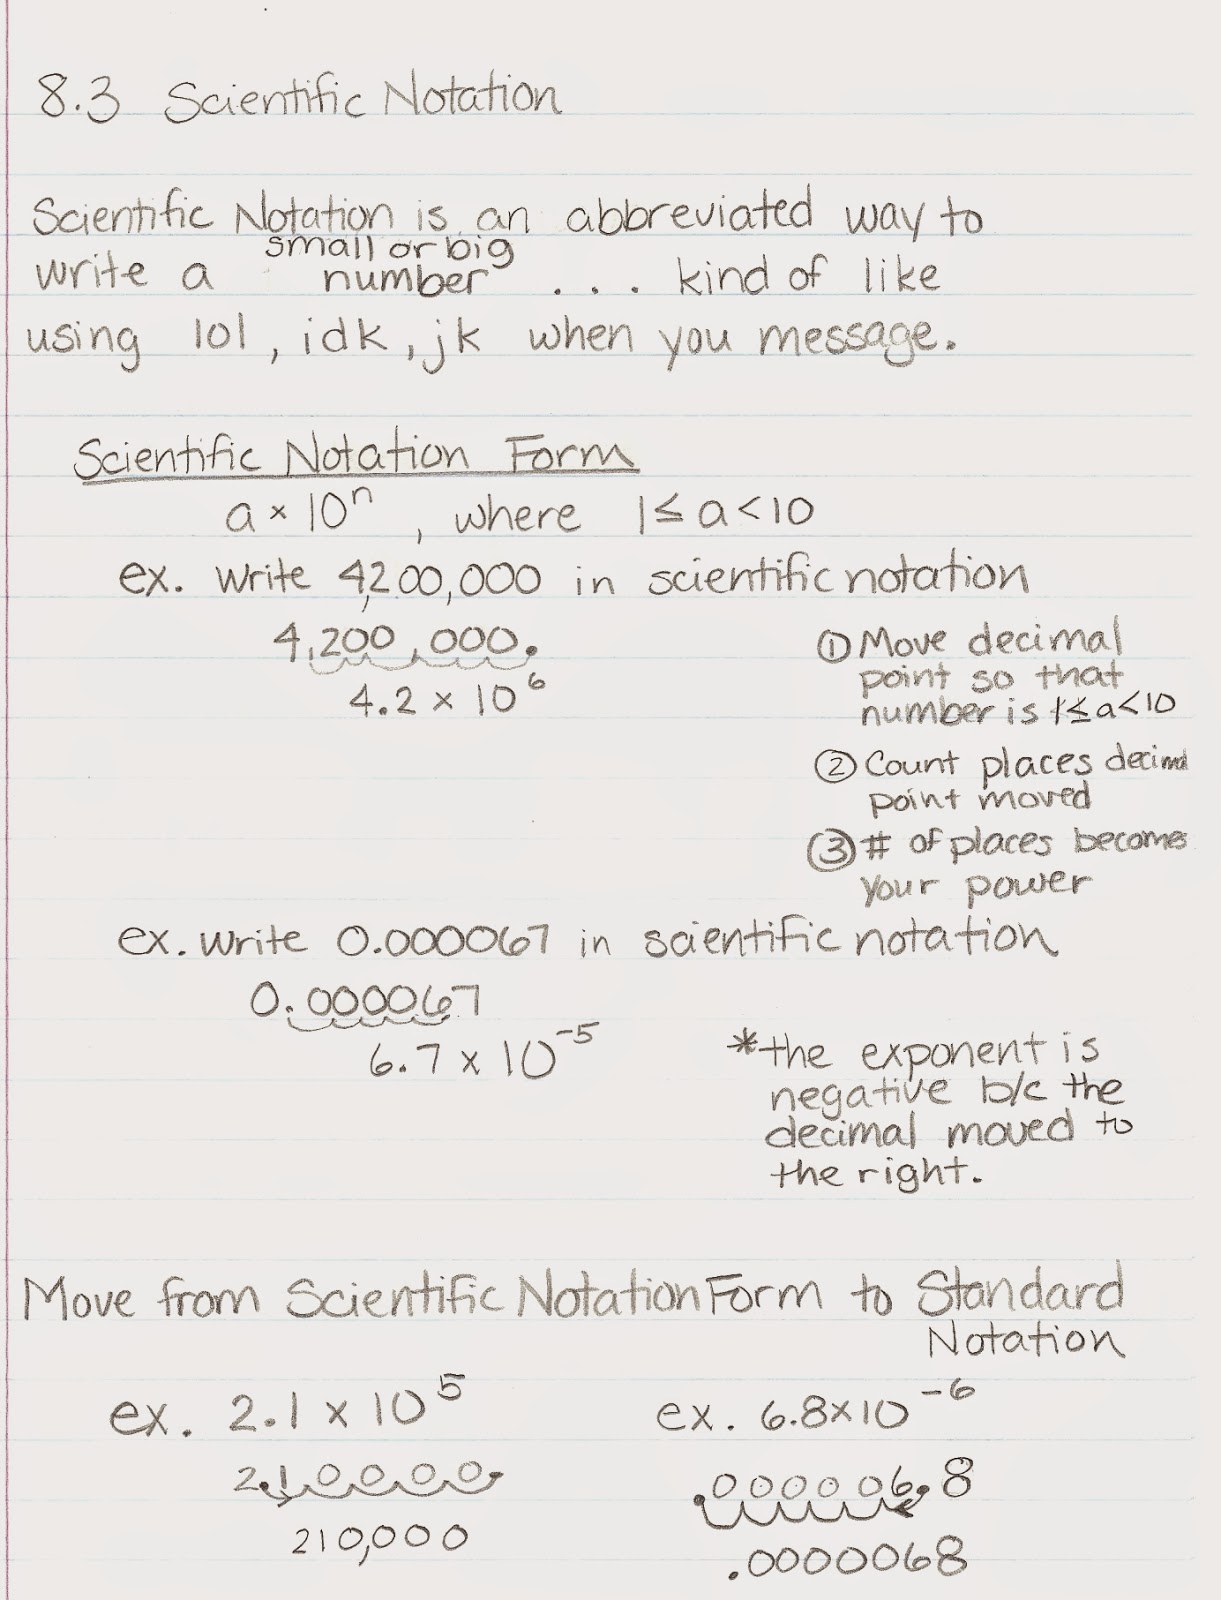 8.3 Scientific Notation
Scientific Notation is an abbreviated way to
small or big
write a number ... kind of like
using lol, idk, jk when you message.
Scientific Notation Form
a × 10ⁿ, where 1 ≤ a < 10
ex. Write 4,200,000 in scientific notation
4,200,000.
4.2 × 10⁶
① Move decimal
point so that
number is 1 ≤ a < 10
② Count places decimal
point moved
③ # of places becomes
your power
ex. Write 0.000067 in scientific notation
0.000067
6.7 × 10⁻⁵
*the exponent is
negative b/c the
decimal moved to
the right.
Move from Scientific Notation Form to Standard
Notation
ex. 2.1 × 10⁵
2.10000.
210,000
ex. 6.8×10⁻⁶
.000006.8
.0000068